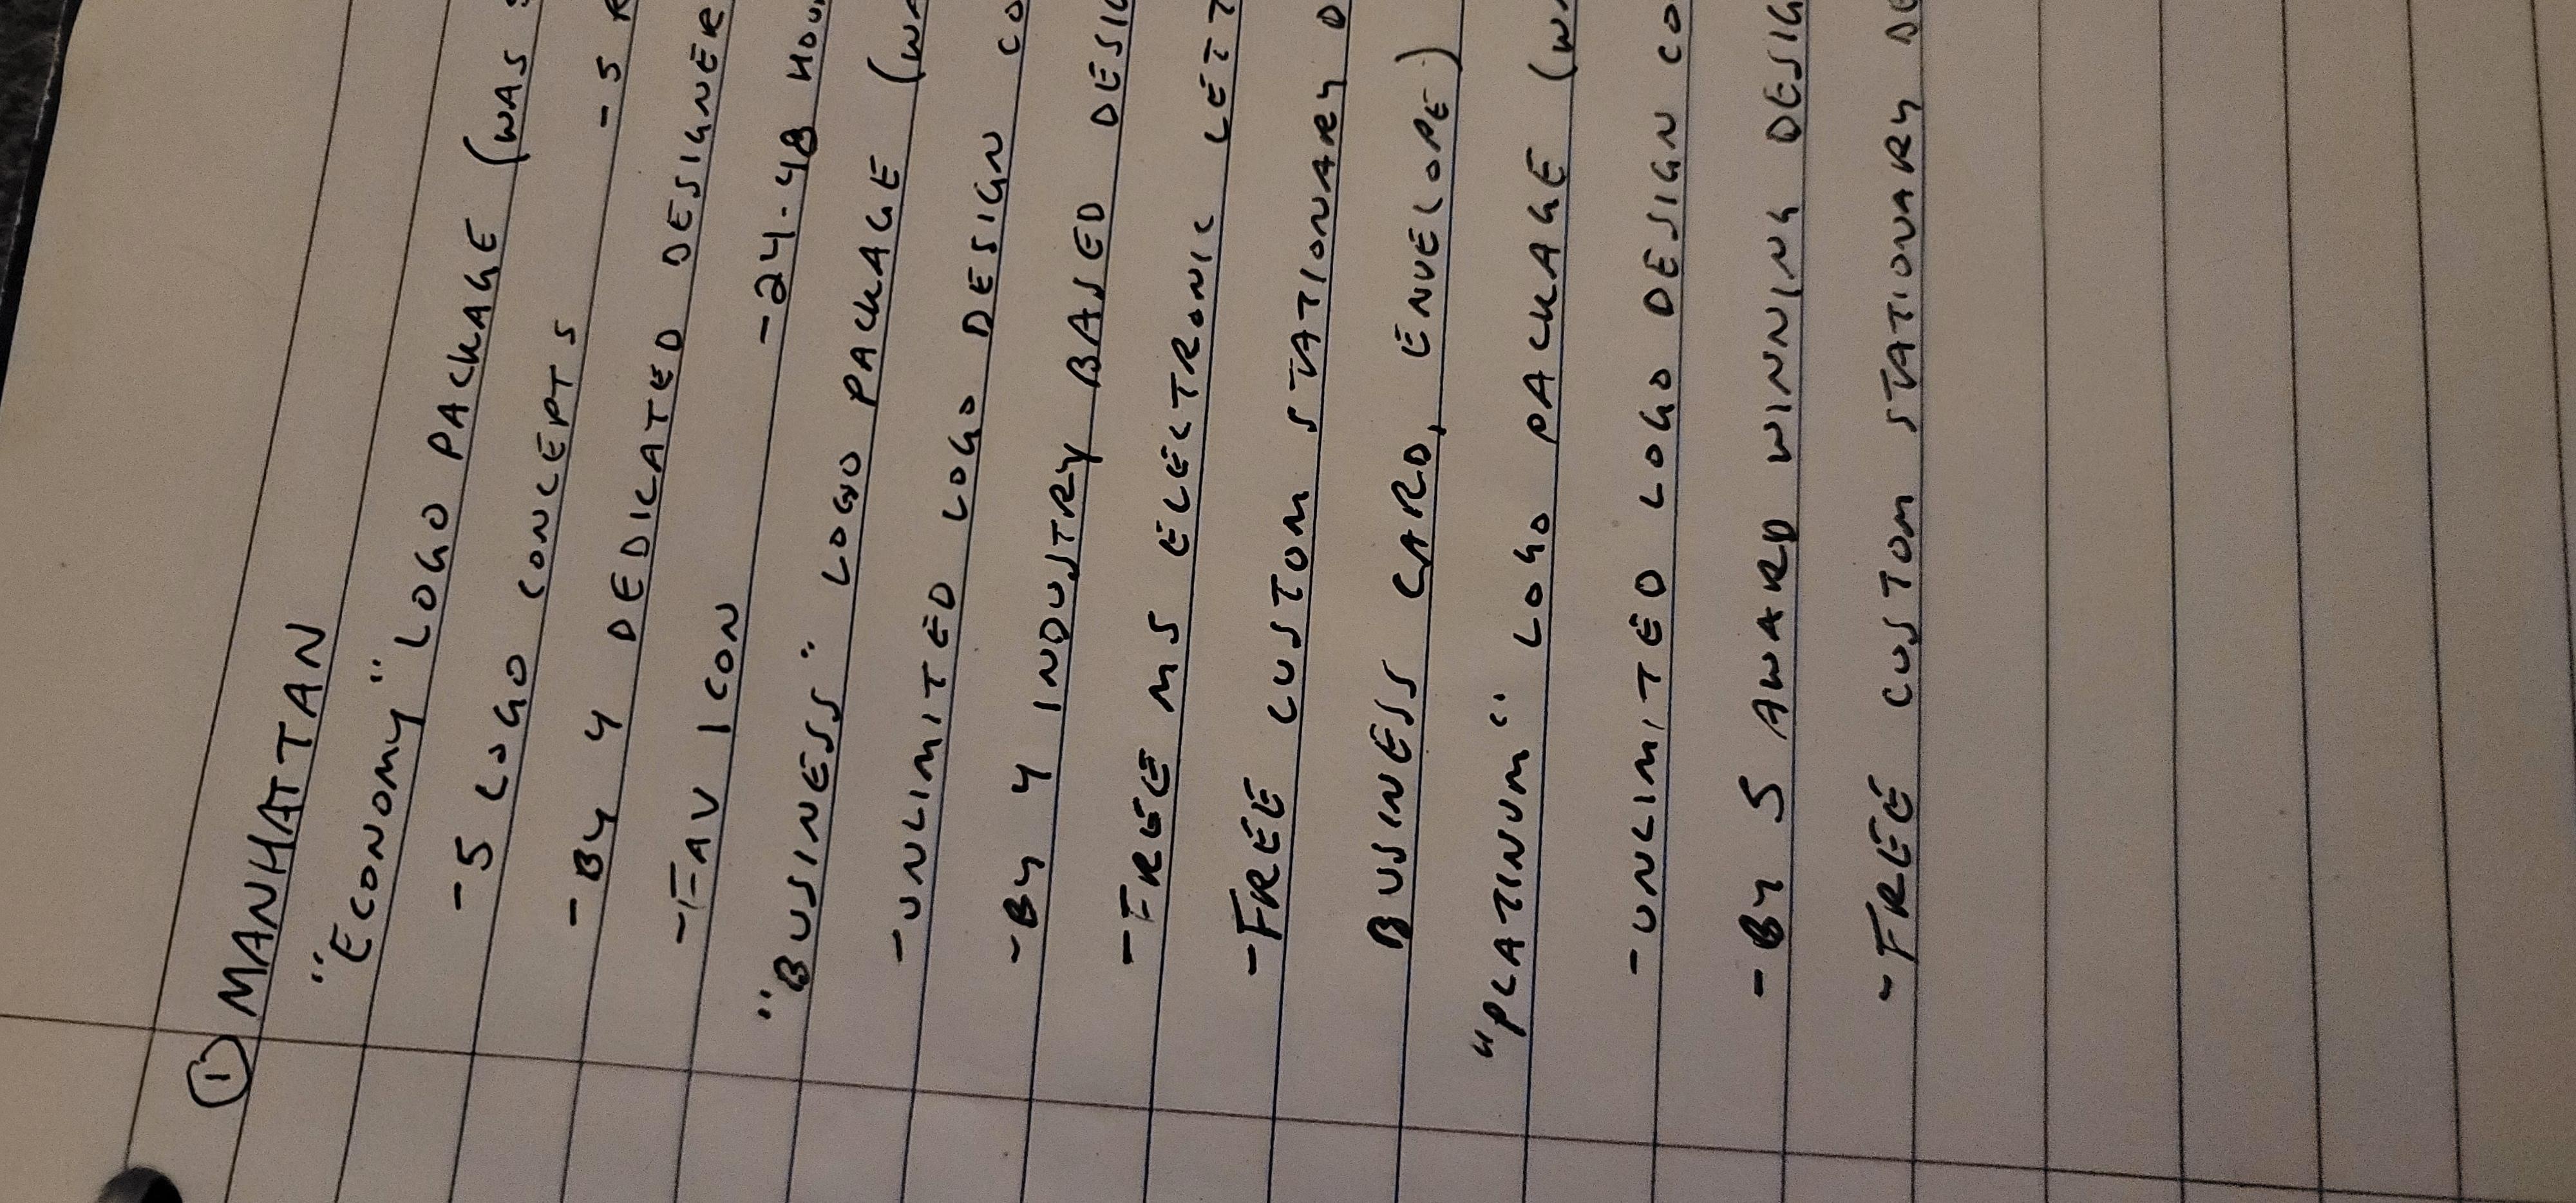 ① MANHATTAN
"ECONOMY" LOGO PACKAGE (WAS
- 5 LOGO CONCEPTS - 5
- BY 4 DEDICATED DESIGNER
- FAV ICON - 24-48 HOU
"BUSINESS" LOGO PACKAGE (WA
- UNLIMITED LOGO DESIGN CO
- BY 4 INDUSTRY BASED DESIG
- FREE MS ELECTRONIC LETT
- FREE CUSTOM STATIONARY D
BUSINESS CARD, ENVELOPE)
"PLATINUM" LOGO PACKAGE (W
- UNLIMITED LOGO DESIGN CO
- BY 5 AWARD WINNING DESIG
- FREE CUSTOM STATIONARY DE